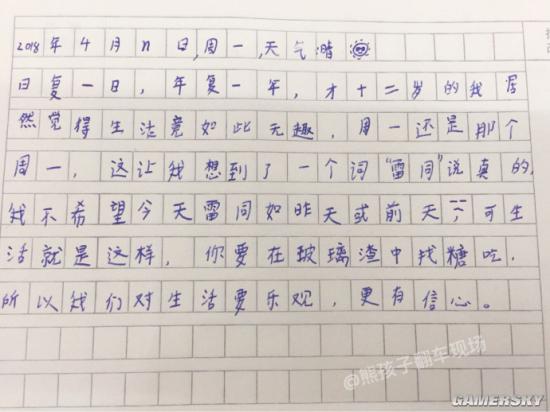 2018年4月n日,周一,天气晴
日复一日，年复一年，才十二岁的我居
然觉得生活竟如此无趣，周一还是那个
周一，这让我想到了一个词“雷同”说真的,
我不希望今天雷同如昨天或前天,可生
活就是这样，你要在玻璃渣中找糖吃，
所以我们对生活要乐观，更有信心。
@熊孩子翻车现场
GAMERSKY